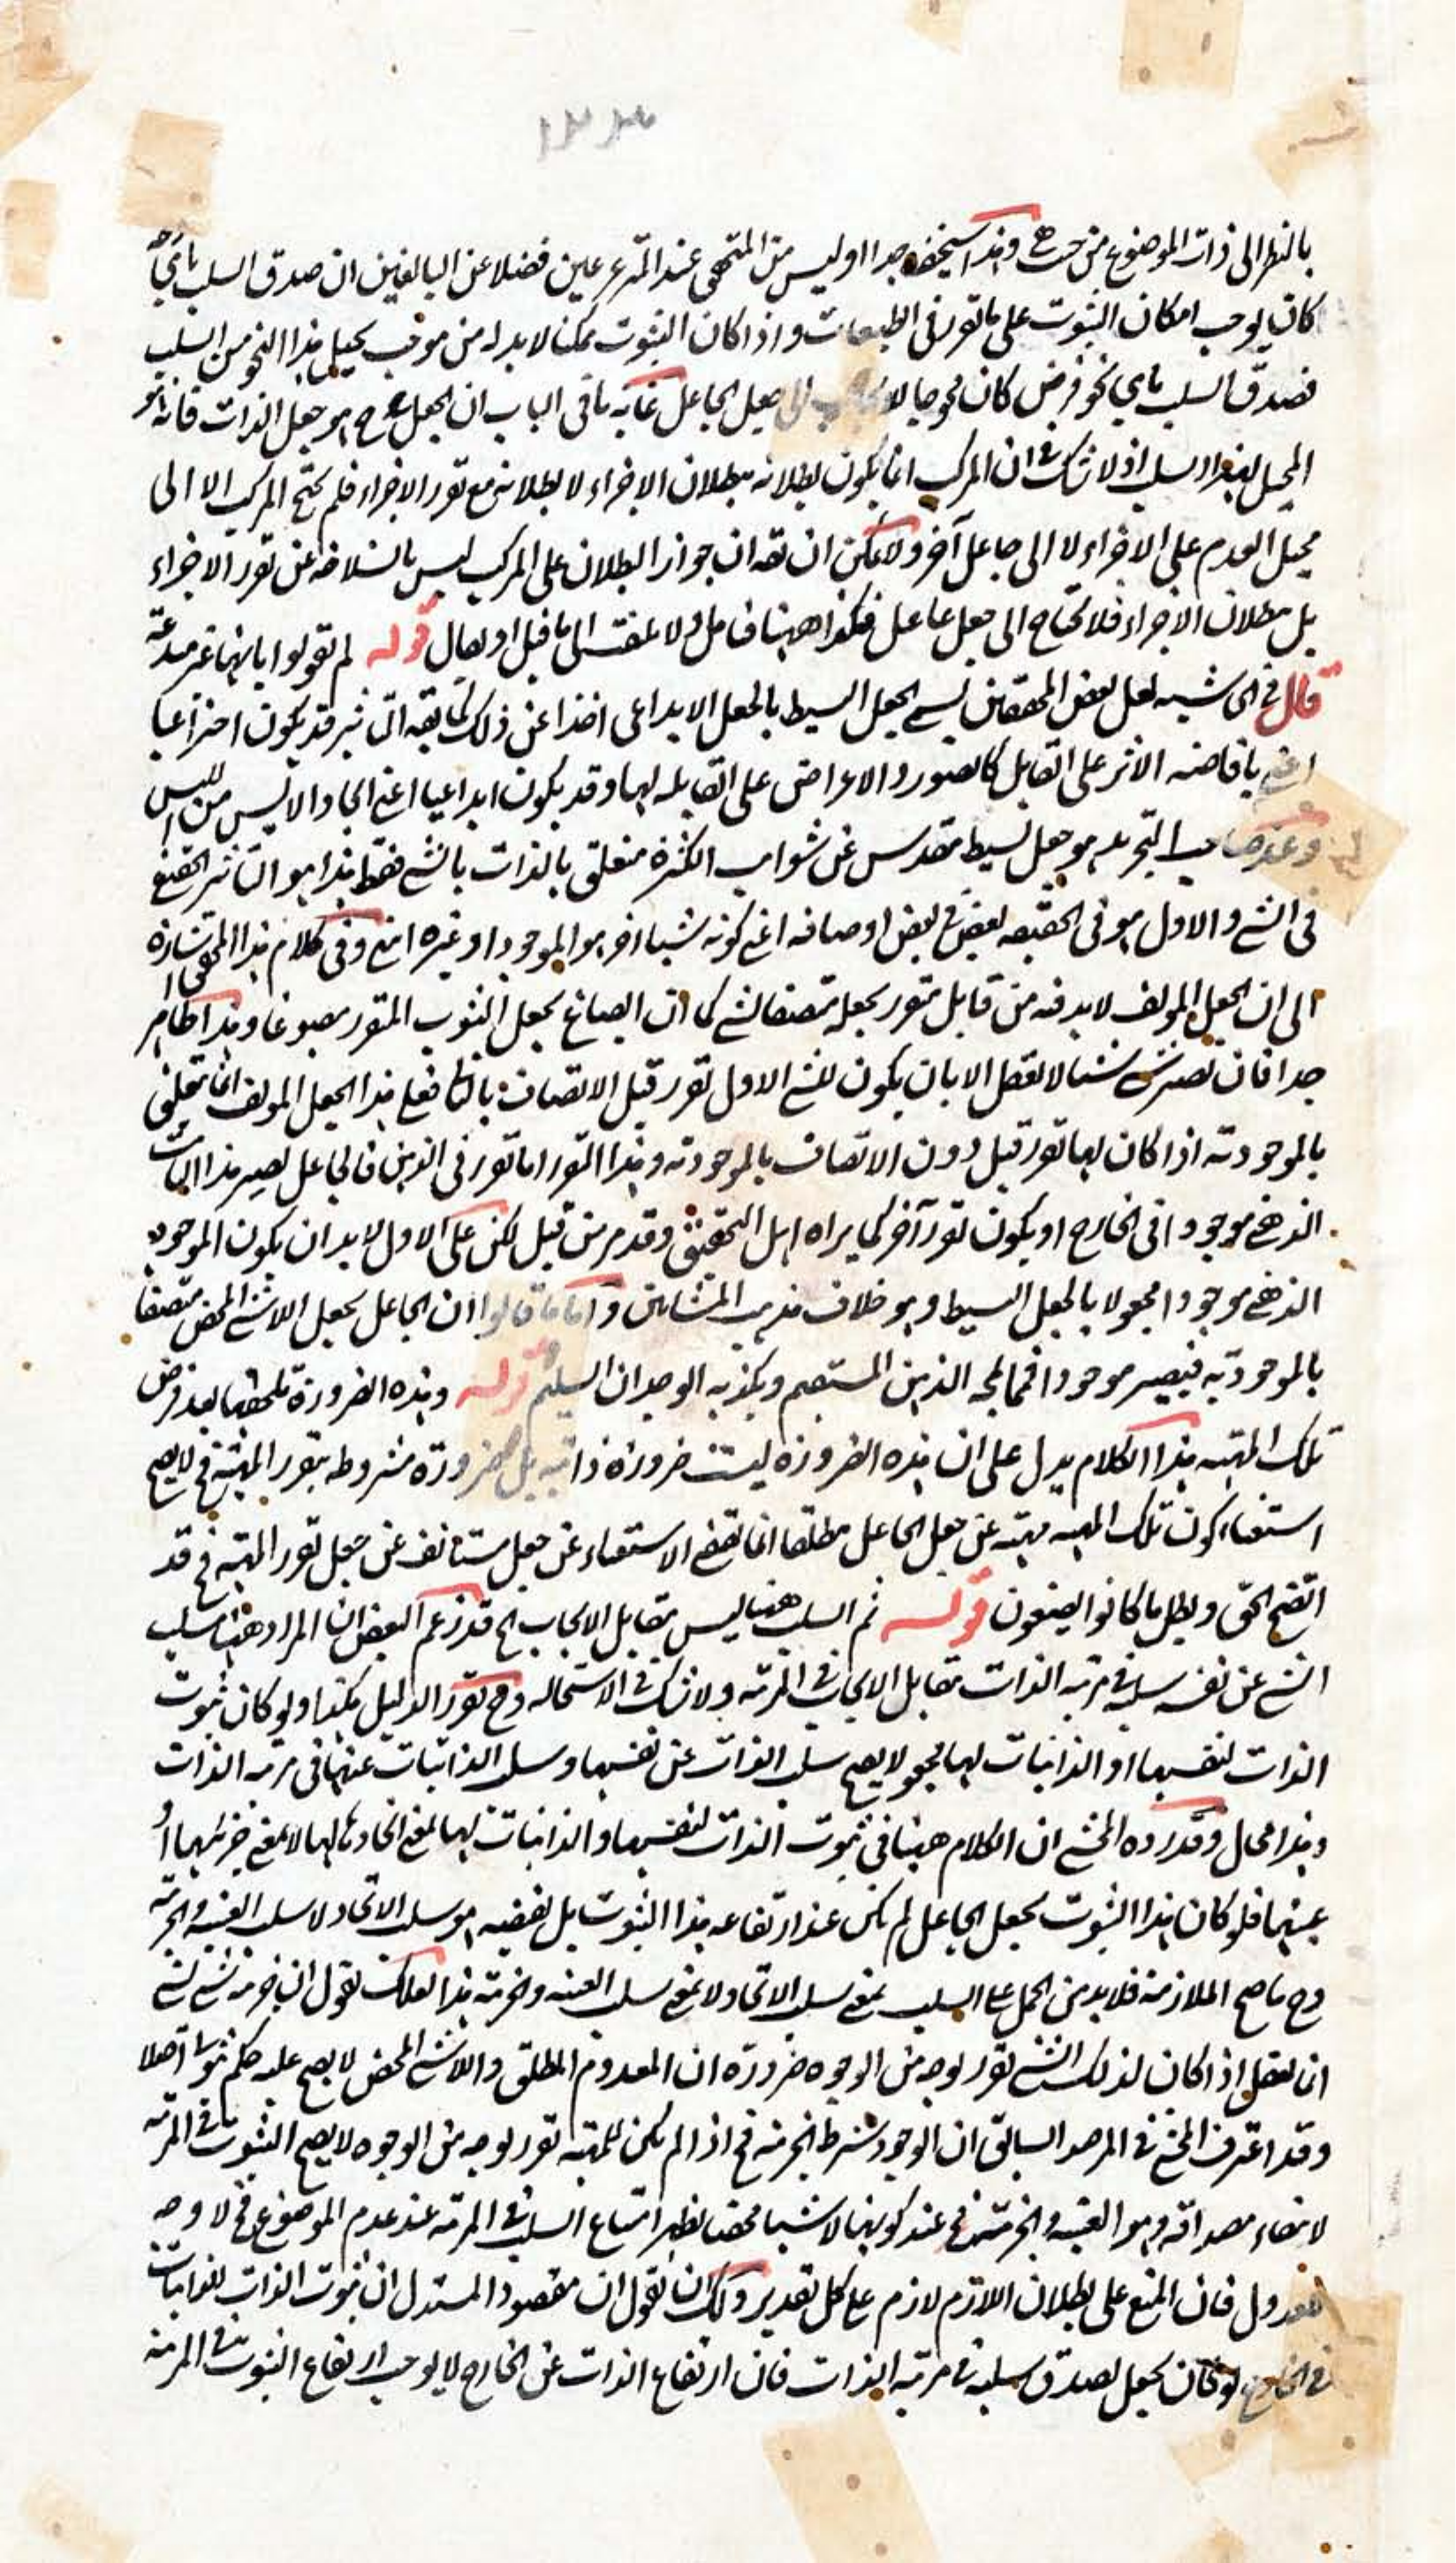 ١٢٣
بالنظر الى ذات الموضوع من حيث هي وهذا سخيف جدا او ليس من المتحقق عند المترعرعين فضلا عن البالغين ان صدق السلب باي
كان يوجب امكان الثبوت على ما تقرر في الطبيعات واذا كان الثبوت ممكنا لا بد له من موجب يحيل هذا النحو من السلب
فصدق السلب باي نحو فرض كان محوجا الى جعل الجاعل غاية ما في الباب ان الجعل ح هو جعل الذات فانه هو
المحيل لهذا السلب اذ لا شك في ان المركب انما يكون بطلانه ببطلان الاجزاء لا بطلانه مع تقرر الاجزاء فلم يحتج المركب الا الى
محيل العدم على الاجزاء لا الى جاعل آخر ولا يمكن ان يقه ان جواز البطلان على المركب ليس بانسلاخه عن تقرر الاجزاء
بل ببطلان الاجزاء فلا يحتاج الى جعل جاعل فكذا ههنا فتامل ولا تلتفت الى ما قيل او يقال قوله لم يقولوا بانها غير
قال في الحاشيه لعل بعض المحققين يسمي الجعل البسيط بالجعل الابداعي اخذا عن ذلك كما يقه التاثير قد يكون اختراعيا
اعني بافاضه الاثر على القابل كالصور والاعراض على القابله لها وقد يكون ابداعيا اعني ايجاد الايس من الليس
وعند صاحب التجريد هو جعل بسيط مقدس عن شوايب الكثرة متعلق بالذات بالشي فقط هذا هو التاثير الحقيقي
في الشي والاول هو في الحقيقه لبعض في بعض اوصافه اعني كونه شيا اخر هو الموجود او غيره انتهى وفي كلام هذا المحقق اشارة
الى ان الجعل المولف لا بد فيه من قابل متقرر يجعله متصفا بشي كما ان الصباغ يجعل الثوب المتقرر مصبوغا وهذا ظاهر
جدا فان تصيير شي شيا لا يعقل الا بان يكون للشي الاول تقرر قبل الاتصاف بالثاني فعلى هذا الجعل المولف انما تعلق
بالموجودية اذا كان لها تقرر قبل دون الاتصاف بالموجودية وهذا التقرر اما تقرر في الذهن فالجاعل يصير هذا الثابت
الذهني موجودا في الخارج او يكون تقررا آخر كما يراه اهل التحقيق وقد مر من قبل لكن على الاول لا بد ان يكون الموجود
الذهني موجودا مجعولا بالجعل البسيط وهو خلاف مذهب المشائين واما ما قالوا ان الجاعل يجعل اللاشي المحض متصفا
بالموجودية فيصير موجودا فمما يمجه الذهن المستقيم ويكذبه الوجدان السليم قوله وهذه الضرورة تلحقها بعد فرض
تلك المهيه هذا الكلام يدل على ان هذه الضرورة ليست ضرورة ذاتيه بل ضرورة مشروطه بتقرر المهية فح لا يصح
استغناء كون تلك المهيه مهيه عن جعل الجاعل مطلقا انما يقتضي الاستغناء عن جعل مستانف عن جعل تقرر المهية فح قد
اتضح الحق وبطل ما كانوا يصنعون قوله ثم السلب ههنا ليس مقابل الايجاب الخ قد زعم البعض ان المراد ههنا سلب
الشي عن نفسه سلبه في مرتبه الذات مقابل الايجاب في المرتبه ولا شك في الاستحاله وح تقرر الدليل هكذا ولو كان ثبوت
الذات لنفسها او الذاتيات لها بجعل لا يصح سلب الذات عن نفسها وسلب الذاتيات عنها في مرتبه الذات
وهذا محال وقد رده المحشي ان الكلام ههنا في ثبوت الذات لنفسها والذاتيات لها بمعنى اتحادها لها لا بمعنى جزئيتها او
عينيتها فلو كان هذا الثبوت بجعل الجاعل لم يكن عند ارتفاعه هذا الثبوت بل نقيضه هو سلب الاتحاد لا سلب العينيه والجزئيه
وح ما صح الملازمة فلا بد من الحمل على السلب بمعنى سلب الاتحاد ولا بمعنى سلب العينيه والجزئيه هذا لعلك تقول ان جزئيه شي لشي
انما يعقل اذا كان لذلك الشي تقرر بوجه من الوجوه ضرورة ان المعدوم المطلق واللاشي المحض لا يصح عليه حكم ثبوتي اصلا
وقد اعترف المحشي في المرصد السابق ان الوجود شرط الجزئيه فح اذا لم يكن للمهية تقرر بوجه من الوجوه لا يصح الثبوت في المرتبه
لانتفاء مصداقه وهو العينيه والجزئيه فح عند كونها لا شيا محضا يظهر امتناع السلب في المرتبه عند عدم الموضوع فح لا وجه
للعدول فان المنع على بطلان اللازم لازم على كل تقدير ولك ان تقول ان مقصود المستدل ان ثبوت الذات للذاتيات
في الخارج لو كان بجعل لصدق سلبه في مرتبه الذات فان ارتفاع الذات عن الخارج لا يوجب ارتفاع الثبوت في المرتبه